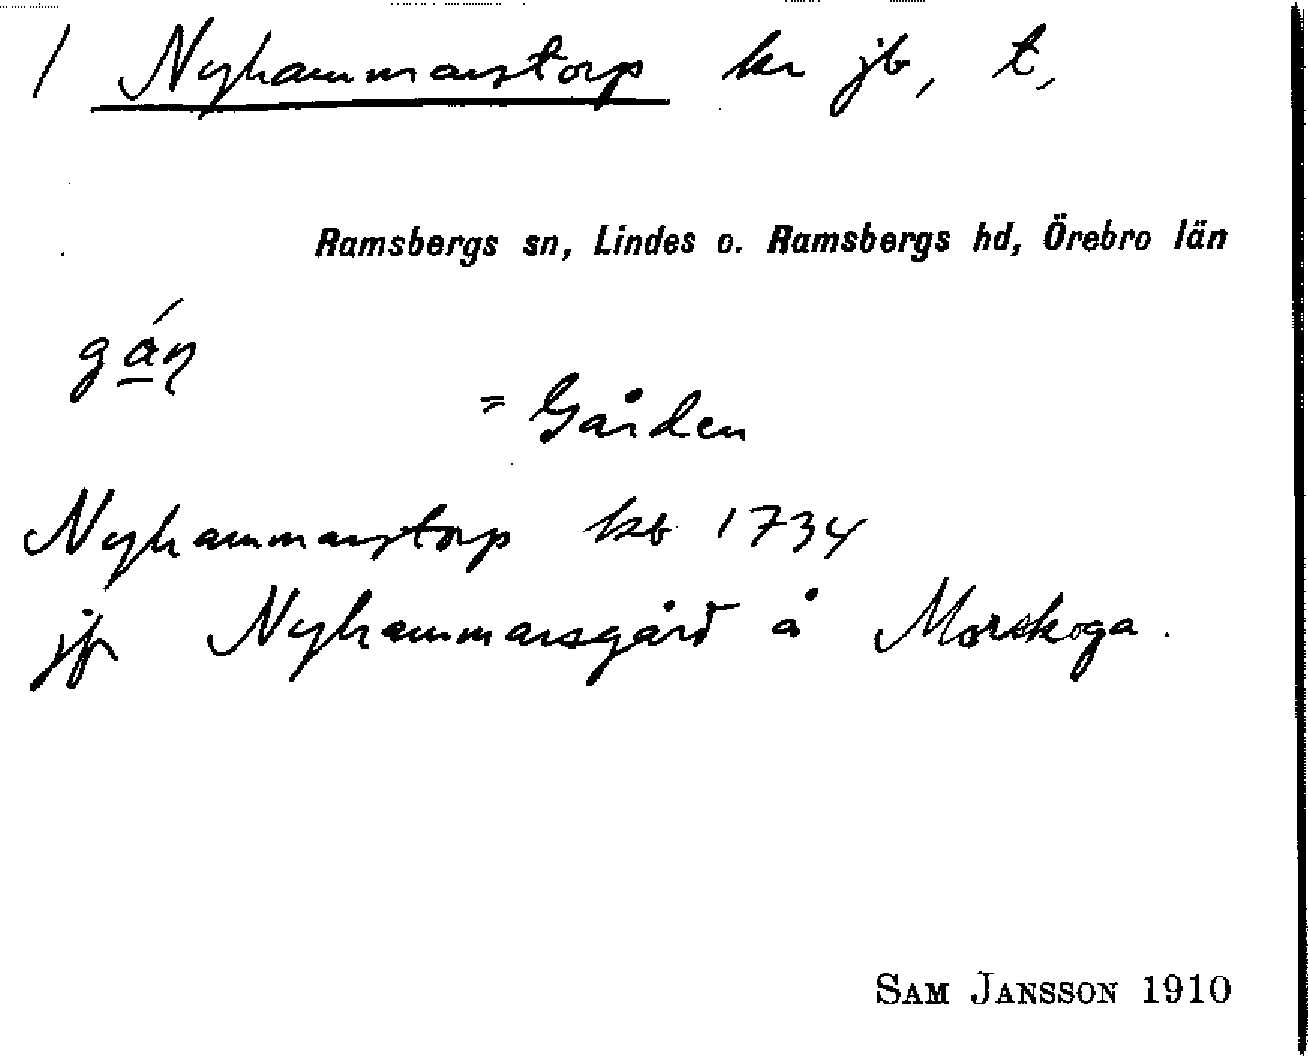 1 Nyhammarstorp kr jb, t,
Ramsbergs sn, Lindes o. Ramsbergs hd, Örebro län
gáṇ
= Gården
Nyhammarstorp kb 1734
jfr Nyhammarsgård å Morskoga.
SAM JANSSON 1910